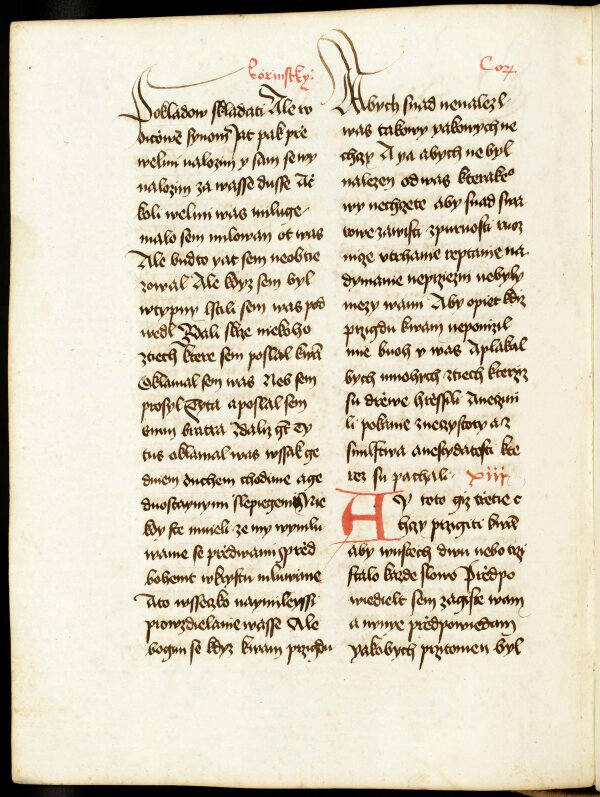 korinstky:
Cor
Pokladow skladati Ale to
oticowe synom Jat pak pře
welmi nalozim y sam sewy
nalozim za wasse dusse Ač
koli welmi was miluge
malo sem milowan ot was
Ale budto yat sem neobtie
zowal Ale kdyz sem byl
wtypny lstili sem was pod
wedl Zdali skrze niekoho
ztiech ktere sem poslal kwam
Oklamal sem was Neb sem
prosyl Tyta a poslal sem
snim bratra Zdaliz gest Ty
tus oklamal was wssak ge
dniem duchem chodime a ge
dnostaynymi slepiegemi Nie
kdy ste mnieli ze my wymlu
wame se předwami před
bohem w krystu mluwime
A to wssecko naymileyssi
prowzdielanie wasse Ale
bogim se kdyz kwam przigdu
Abych snad nenalezl
was takowy yakowych ne
chczy A ya abych nebyl
nalezen od was kterakeo
wy nechczete aby snad swa
rowe zawisti zpurnosti ruoz
nice vtrhanie reptanie na
dymanie nepřiezni nebyly
mezy wami Aby opiet kdyz
przigdu kwam neponizil
mie buoh v was A plakal
bych mnohych ztiech kterzyz
su dřewe hřessili A neczini
li pokanie z neczystoty a z
smilstwa a nestydatosti kte
rez su pachali xiii
Ay toto giz třetie c
hczy przigiti kwam
aby wustech dwu nebo trzi
stalo kazde slowo Předpo
wiediel sem zagiste wam
a nynye předpowiedam
yakobych przitomen byl